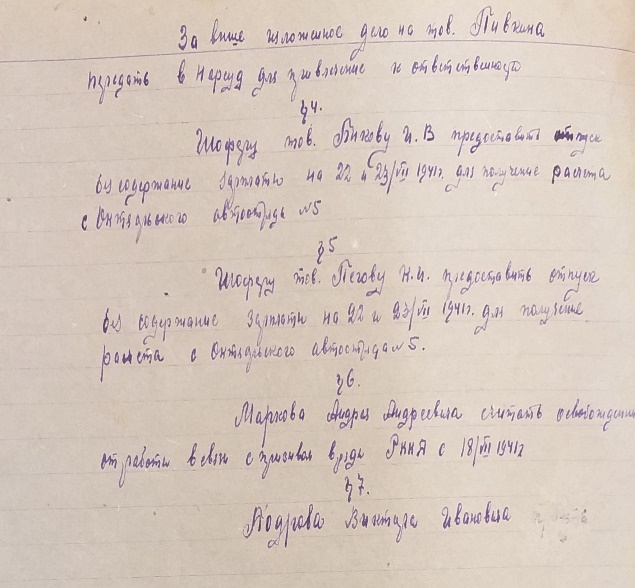 За више изложенное дело на тов. Пивкина
передать в Нарсуд для привлечение к ответственность
§4.
Шоферу тов. Быкову И. В предоставить отпуск
без содержание зарплаты на 22 и 23/VII 1941г. для получение расчета
с Онтяльского автоотряда №5
§5
Шоферу тов. Пегову Н.И. предоставить отпуск
без содержание зарплаты на 22 и 23/VII 1941г. для получение
расчета с Онтяльского автоотряда №5.
§6.
Маркова Андрея Андреевича считать освобожденны
от работы в связи с призывом в ряды РККА с 18/VII 1941г
§7.
Виктора Ивановича